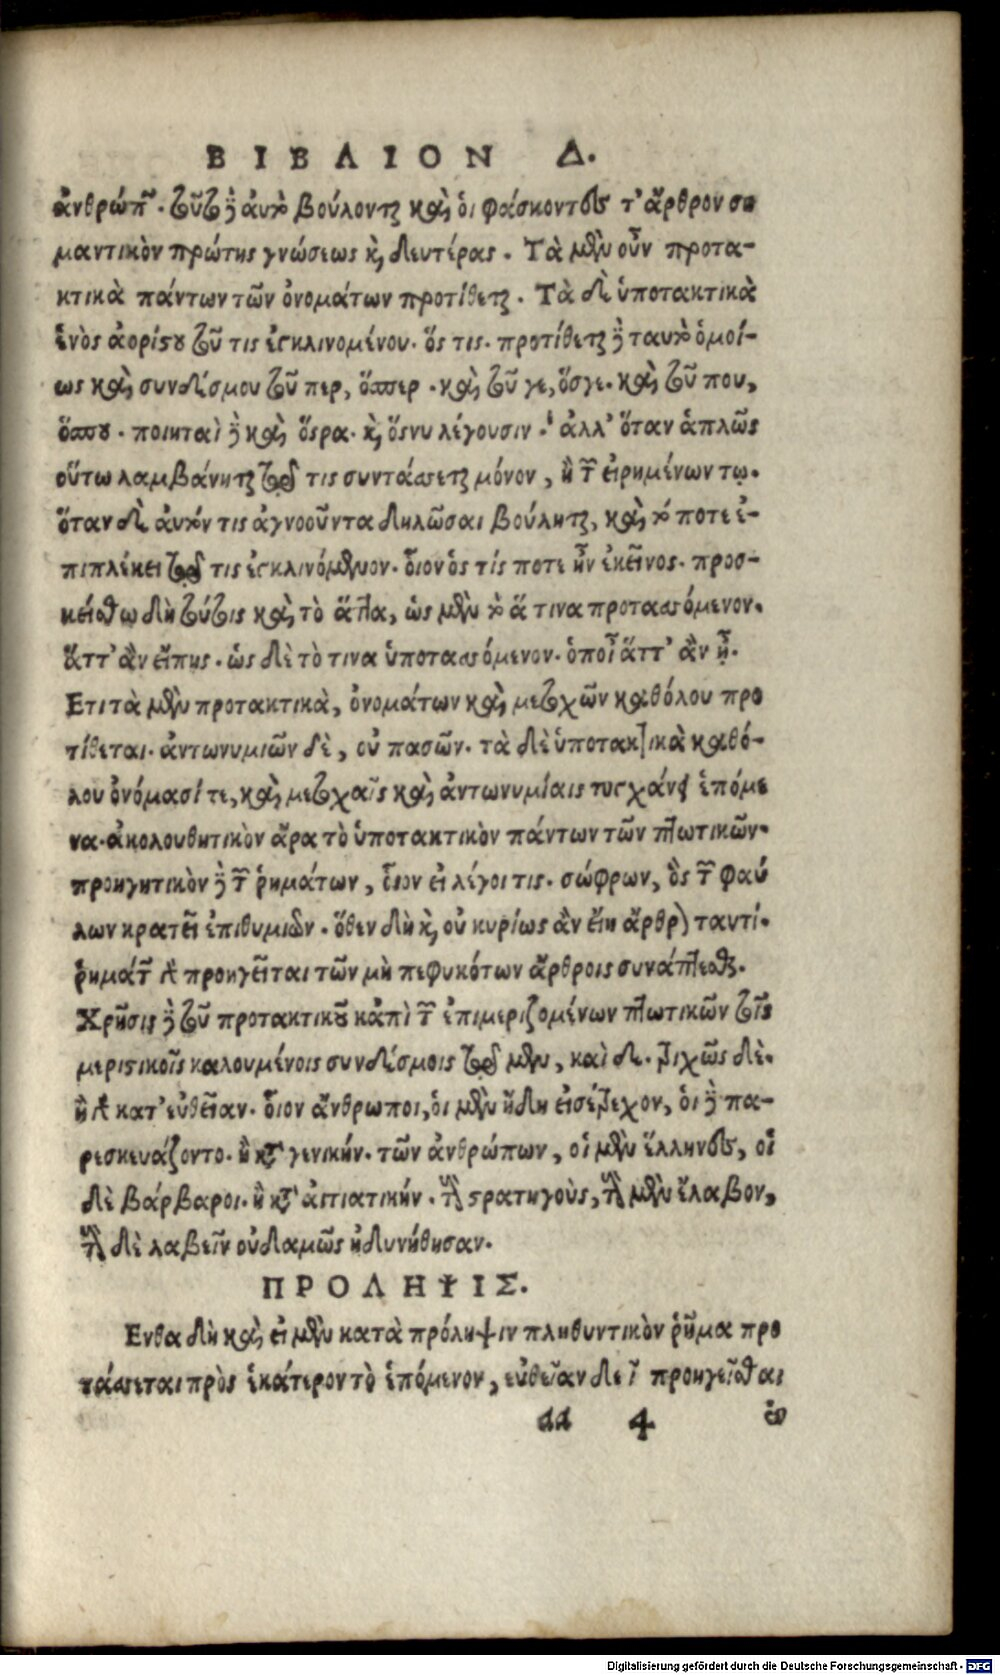 ΒΙΒΛΙΟΝ Δ.
ἀνθρώπων. τοῦτο δὲ αὐτὸ βούλονται καὶ οἱ φάσκοντες τ' ἄρθρον ση
μαντικὸν πρώτης γνώσεως καὶ δευτέρας. Τὰ μὲν οὖν προτα-
κτικὰ πάντων τῶν ὀνομάτων προτίθεται. Τὰ δὲ ὑποτακτικὰ
ἑνὸς ἀορίστου τοῦ τις ἐγκλινομένου. ὅς τις. προτίθεται δὲ ταυτὸ ὁμοί-
ως καὶ συνδέσμου τοῦ περ, ὅσπερ. καὶ τοῦ γε, ὅσγε. καὶ τοῦ που,
ὅσπου. ποιηταὶ δὲ καὶ ὅσρα. καὶ ὅσνυ λέγουσιν. ἀλλ' ὅταν ἁπλῶς
οὕτω λαμβάνηται τῷδε τις συντάσσεται μόνον, ἢ τῶν εἰρημένων τῳ.
ὅταν δὲ αὐτόν τις ἀγνοοῦντα δηλῶσαι βούληται, καὶ τό ποτε ἐ-
πιπλέκει τῷδε τις ἐγκλινόμενον. οἷον ὅς τίς ποτε ἦν ἐκεῖνος. προσ-
κείσθω δὴ τούτοις καὶ τὸ ἅττα, ὡς μὲν τὸ ἅ τινα προτασσόμενον.
ἅττ' ἂν εἴπῃς. ὡς δὲ τὸ τινα ὑποτασσόμενον. ὁποῖ ἅττ' ἂν ᾖ.
Ετι τὰ μὲν προτακτικὰ, ὀνομάτων καὶ μετοχῶν καθόλου προ
τίθεται. ἀντωνυμιῶν δὲ, οὐ πασῶν. τὰ δὲ ὑποτακτικὰ καθό-
λου ὀνόμασί τε, καὶ μετοχαῖς καὶ ἀντωνυμίαις τυγχάνει ἑπόμε
να. ἀκολουθητικὸν ἄρα τὸ ὑποτακτικὸν πάντων τῶν πτωτικῶν.
προηγητικὸν δὲ τῶν ῥημάτων, οἷον εἰ λέγοι τις. σώφρων, ὃς τῶν φαύ
λων κρατεῖ ἐπιθυμιῶν. ὅθεν δὴ καὶ οὐ κυρίως ἂν εἴη ἄρθρον ταυτί.
ῥημάτων γὰρ προηγεῖται τῶν μὴ πεφυκότων ἄρθροις συνάπτεσθαι.
Χρῆσις δὲ τοῦ προτακτικοῦ κἀπὶ τῶν ἐπιμεριζομένων πτωτικῶν τοῖς
μεριστικοῖς καλουμένοις συνδέσμοις τῷδε μὲν, καὶ δὲ. τριχῶς δὲ.
ἢ γὰρ κατ' εὐθεῖαν. οἷον ἄνθρωποι, οἱ μὲν ἤδη εἰσέτρεχον, οἱ δὲ πα-
ρεσκευάζοντο. ἢ κατὰ γενικήν. τῶν ἀνθρώπων, οἱ μὲν ἕλληνες, οἱ
δὲ βάρβαροι. ἢ κατ' αἰτιατικήν. τοὺς στρατηγοὺς, τοὺς μὲν ἔλαβον,
τοὺς δὲ λαβεῖν οὐδαμῶς ἠδυνήθησαν.
ΠΡΟΛΗΨΙΣ.
Ενθα δὴ καὶ εἰ μὲν κατὰ πρόληψιν πληθυντικὸν ῥῆμα προ
τάσσεται πρὸς ἑκάτερον τὸ ἑπόμενον, εὐθεῖαν δεῖ προηγεῖσθαι
aa 4 ἐν